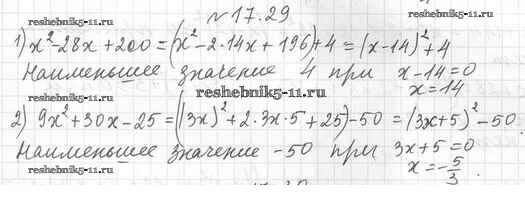 reshebnik5-11.ru
№17.29
reshebnik5-11.ru
1) x²-28x+200=(x²-2·14x+196)+4=(x-14)²+4
Наименьшее значение 4 при x-14=0
x=14
reshebnik5-11.ru
2) 9x²+30x-25=((3x)²+2·3x·5+25)-50=(3x+5)²-50.
Наименьшее значение -50 при 3x+5=0
x=-5/3.
reshebnik5-11.ru
reshebnik5-11.ru